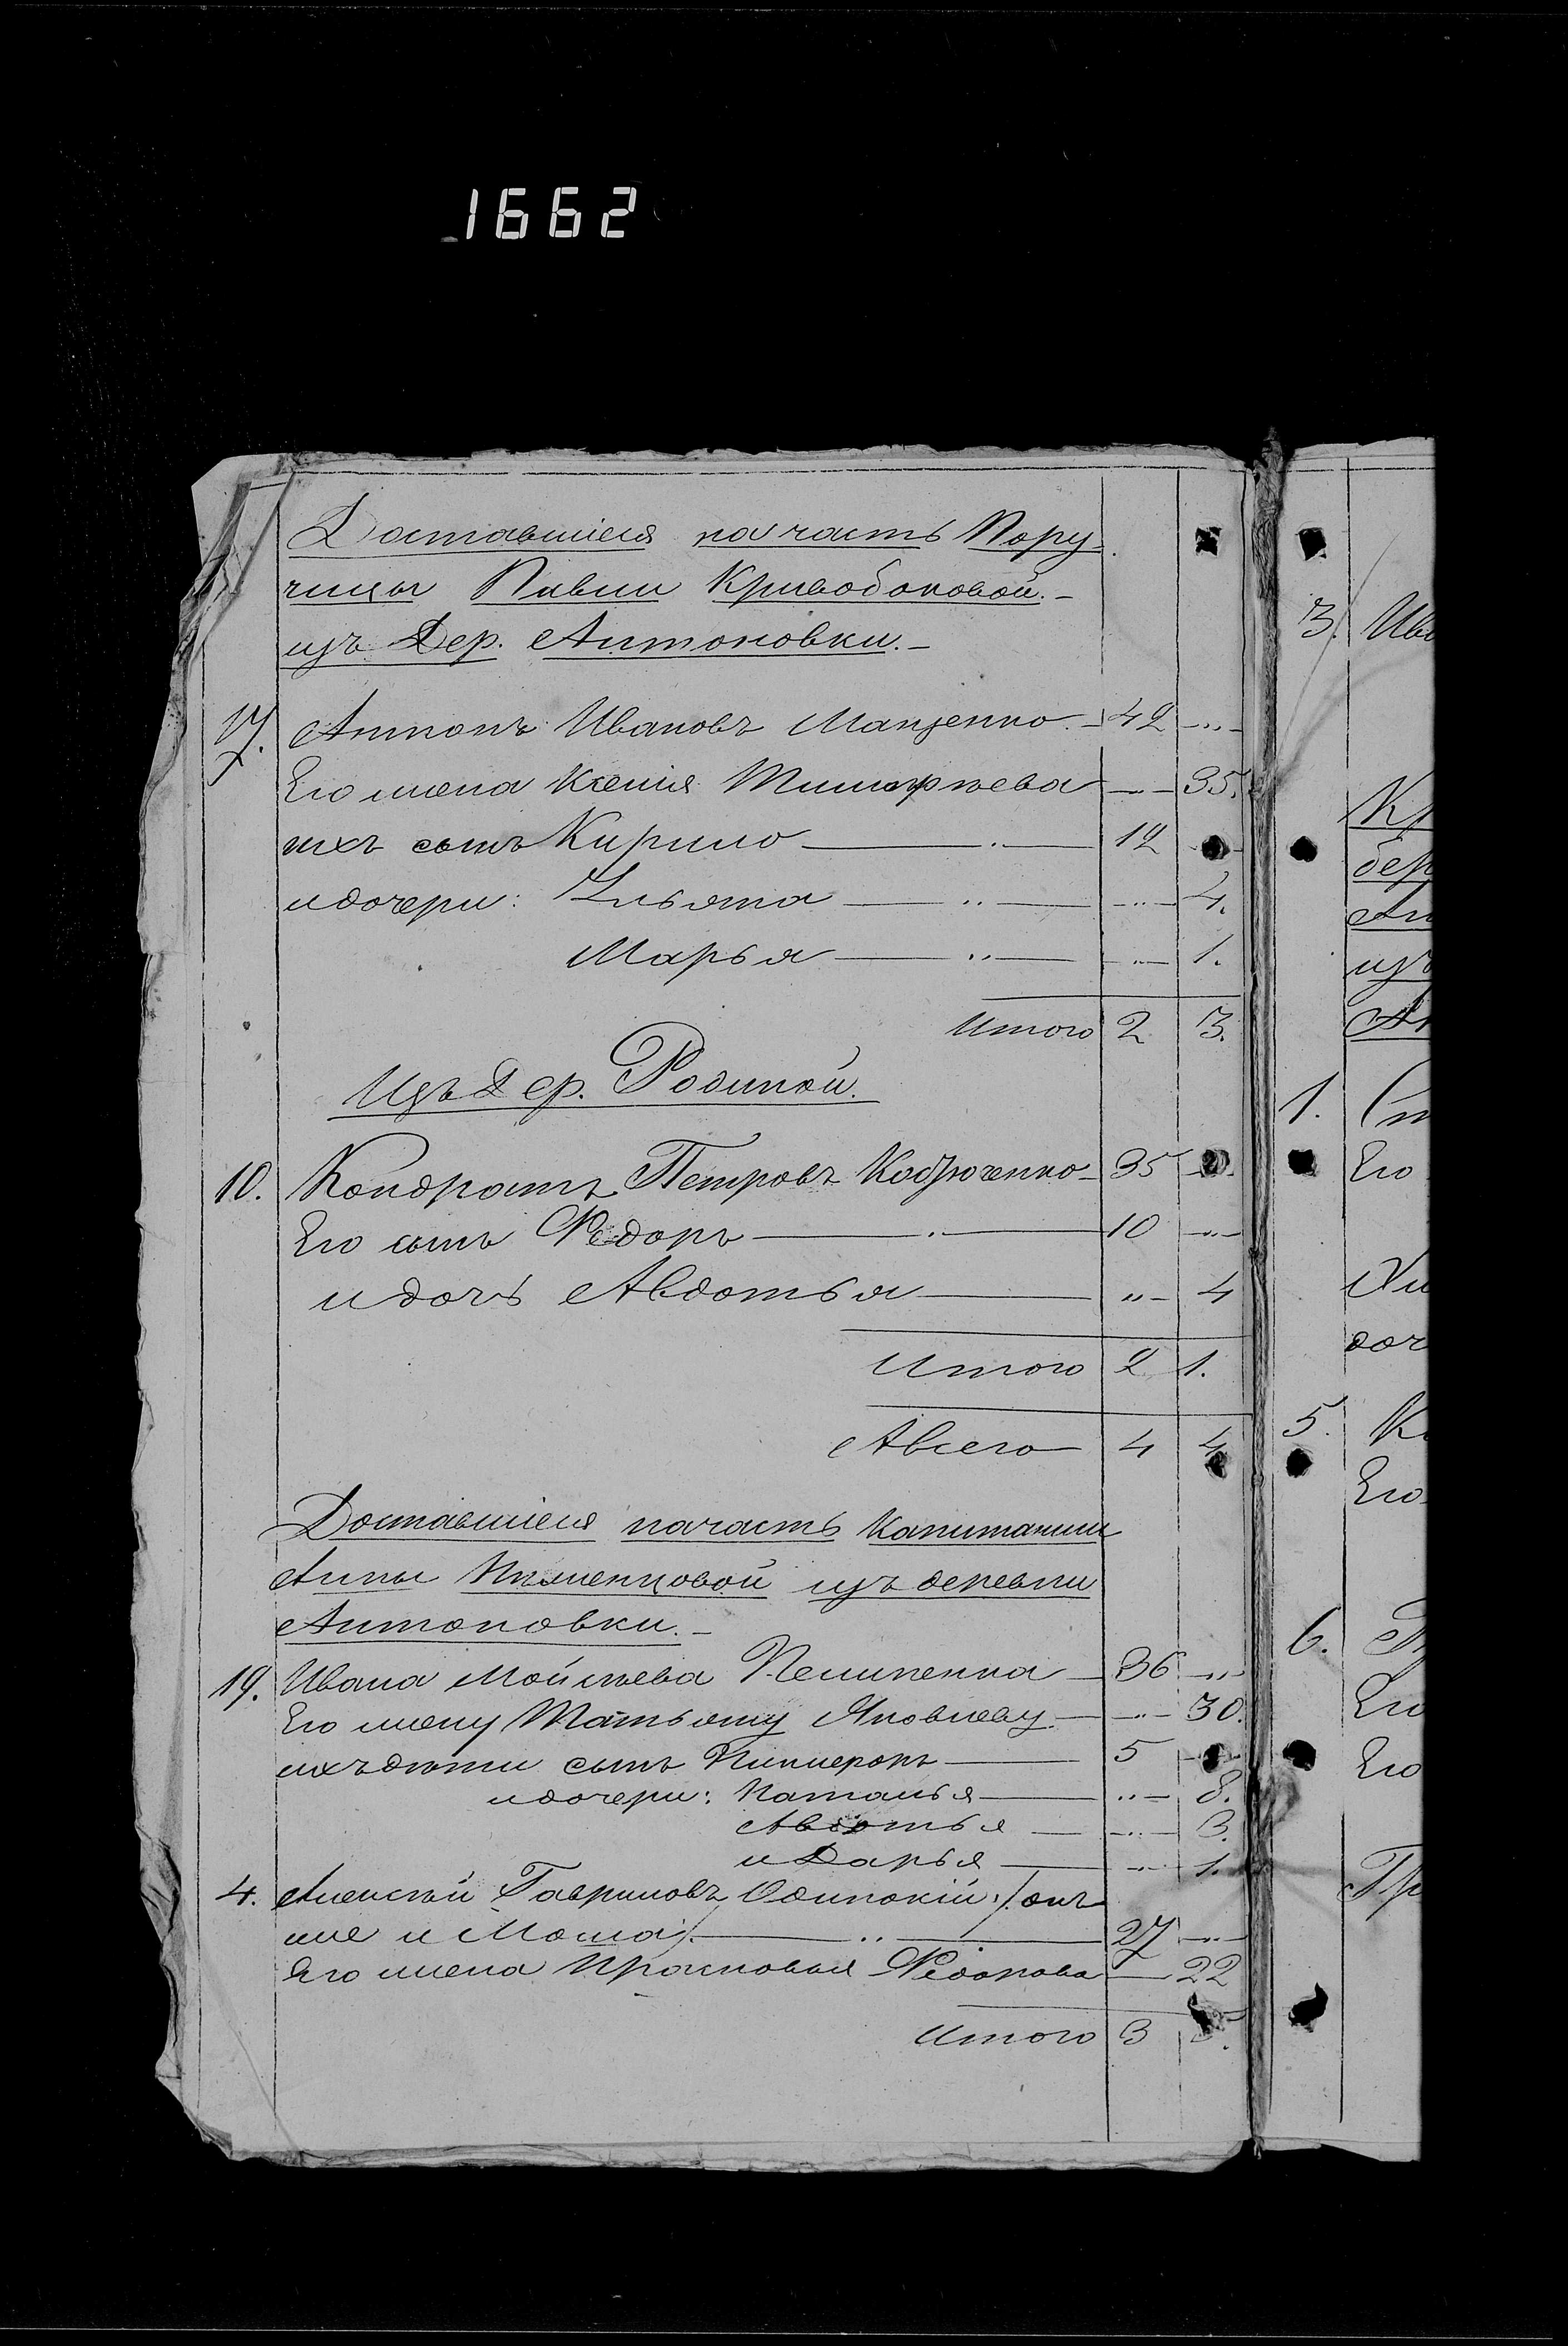 1662
Доставшіеся на часть Пору-
чицы Павли Кривобоковой.-
изъ Дер. Антоновки.-
17. Антонъ Ивановъ Манзенко - 42 -"-
Его жена Ксенія Тимофѣева -"- 35.
ихъ сынъ Кирило 12
и дочери: Ульяна -"- 4.
Марья -"- 1.
Итого 2 3.
Изъ Дер. Родиной.
10. Кондратъ Петровъ Кобзюченко - 35
Его сынъ Ѳедоръ 10 -"-
и дочь Авдотья " 4
Итого 2 1.
А всего 4 4
Доставшіеся на часть Капитанши
Анны изъ деревни
Антоновки.-
19. Ивана Мойсѣева Пелипенка 36 -"-
Его жену Татьяну Яковлеву -"- 30.
ихъ дѣти сынъ Никифоръ 5
и дочери: Наталья " 8.
Авдотья -"- 3.
и Дарья -"- 1.
4. Алексѣй Гавриловъ Одинокій /: онъ
же и Мома :/ 27 -"-
Его жена Прасковья Ѳедорова — 22
Итого 3 5.
3. Ив
Кр
бер
Ан
изъ
Ан
1.
Его
доч
5. К
Его
6.
Его
Его
Гр